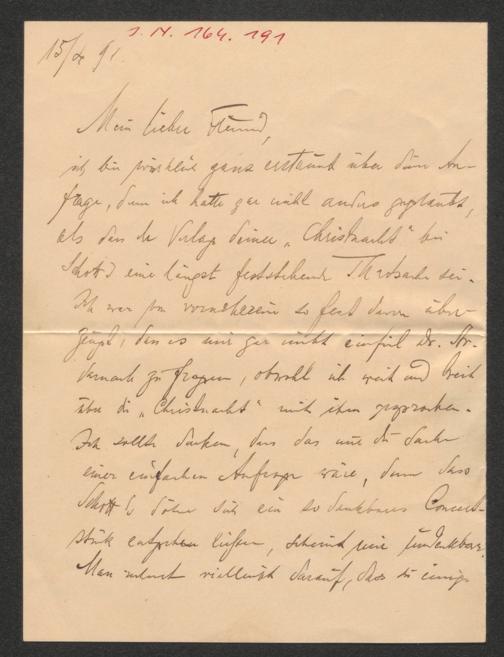 J. N. 164.191
15/4 91.
Mein lieber Freund,
ich bin wirklich ganz erstaunt über Deine An-
frage, denn ich hatte gar nicht anders geglaubt,
als dass der Verlag Deiner „Christnacht" bei
Schott eine längst feststehende Thatsache sei.
Ich war von vorneherein so fest davon über-
zeugt, dass es mir gar nicht einfiel Dr. Str.
darnach zu fragen, obwohl ich weit und breit
über die „Christnacht" mit ihm gesprochen.
Ich sollte denken, dass das nur die Sache
einer einfachen Anfrage wäre, denn dass
Schott's Söhne sich ein so dankbares Concert-
stück entgehen ließen, scheint mir undenkbar.
Man wartet vielleicht darauf, dass Du einige